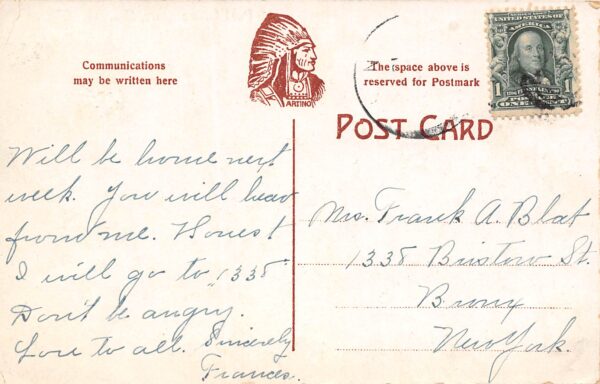 Communications
may be written here
ARTINO
The space above is
reserved for Postmark
UNITED STATES OF
AMERICA
1 1
ONE CENT
POST CARD
Will be home next
week. You will hear
from me. Honest
I will go to "1335"
Don't be angry.
Love to all. Sincerely
Frances.
Mrs. Frank A. Blat
1335 Bristow St.
Bronx
New York.